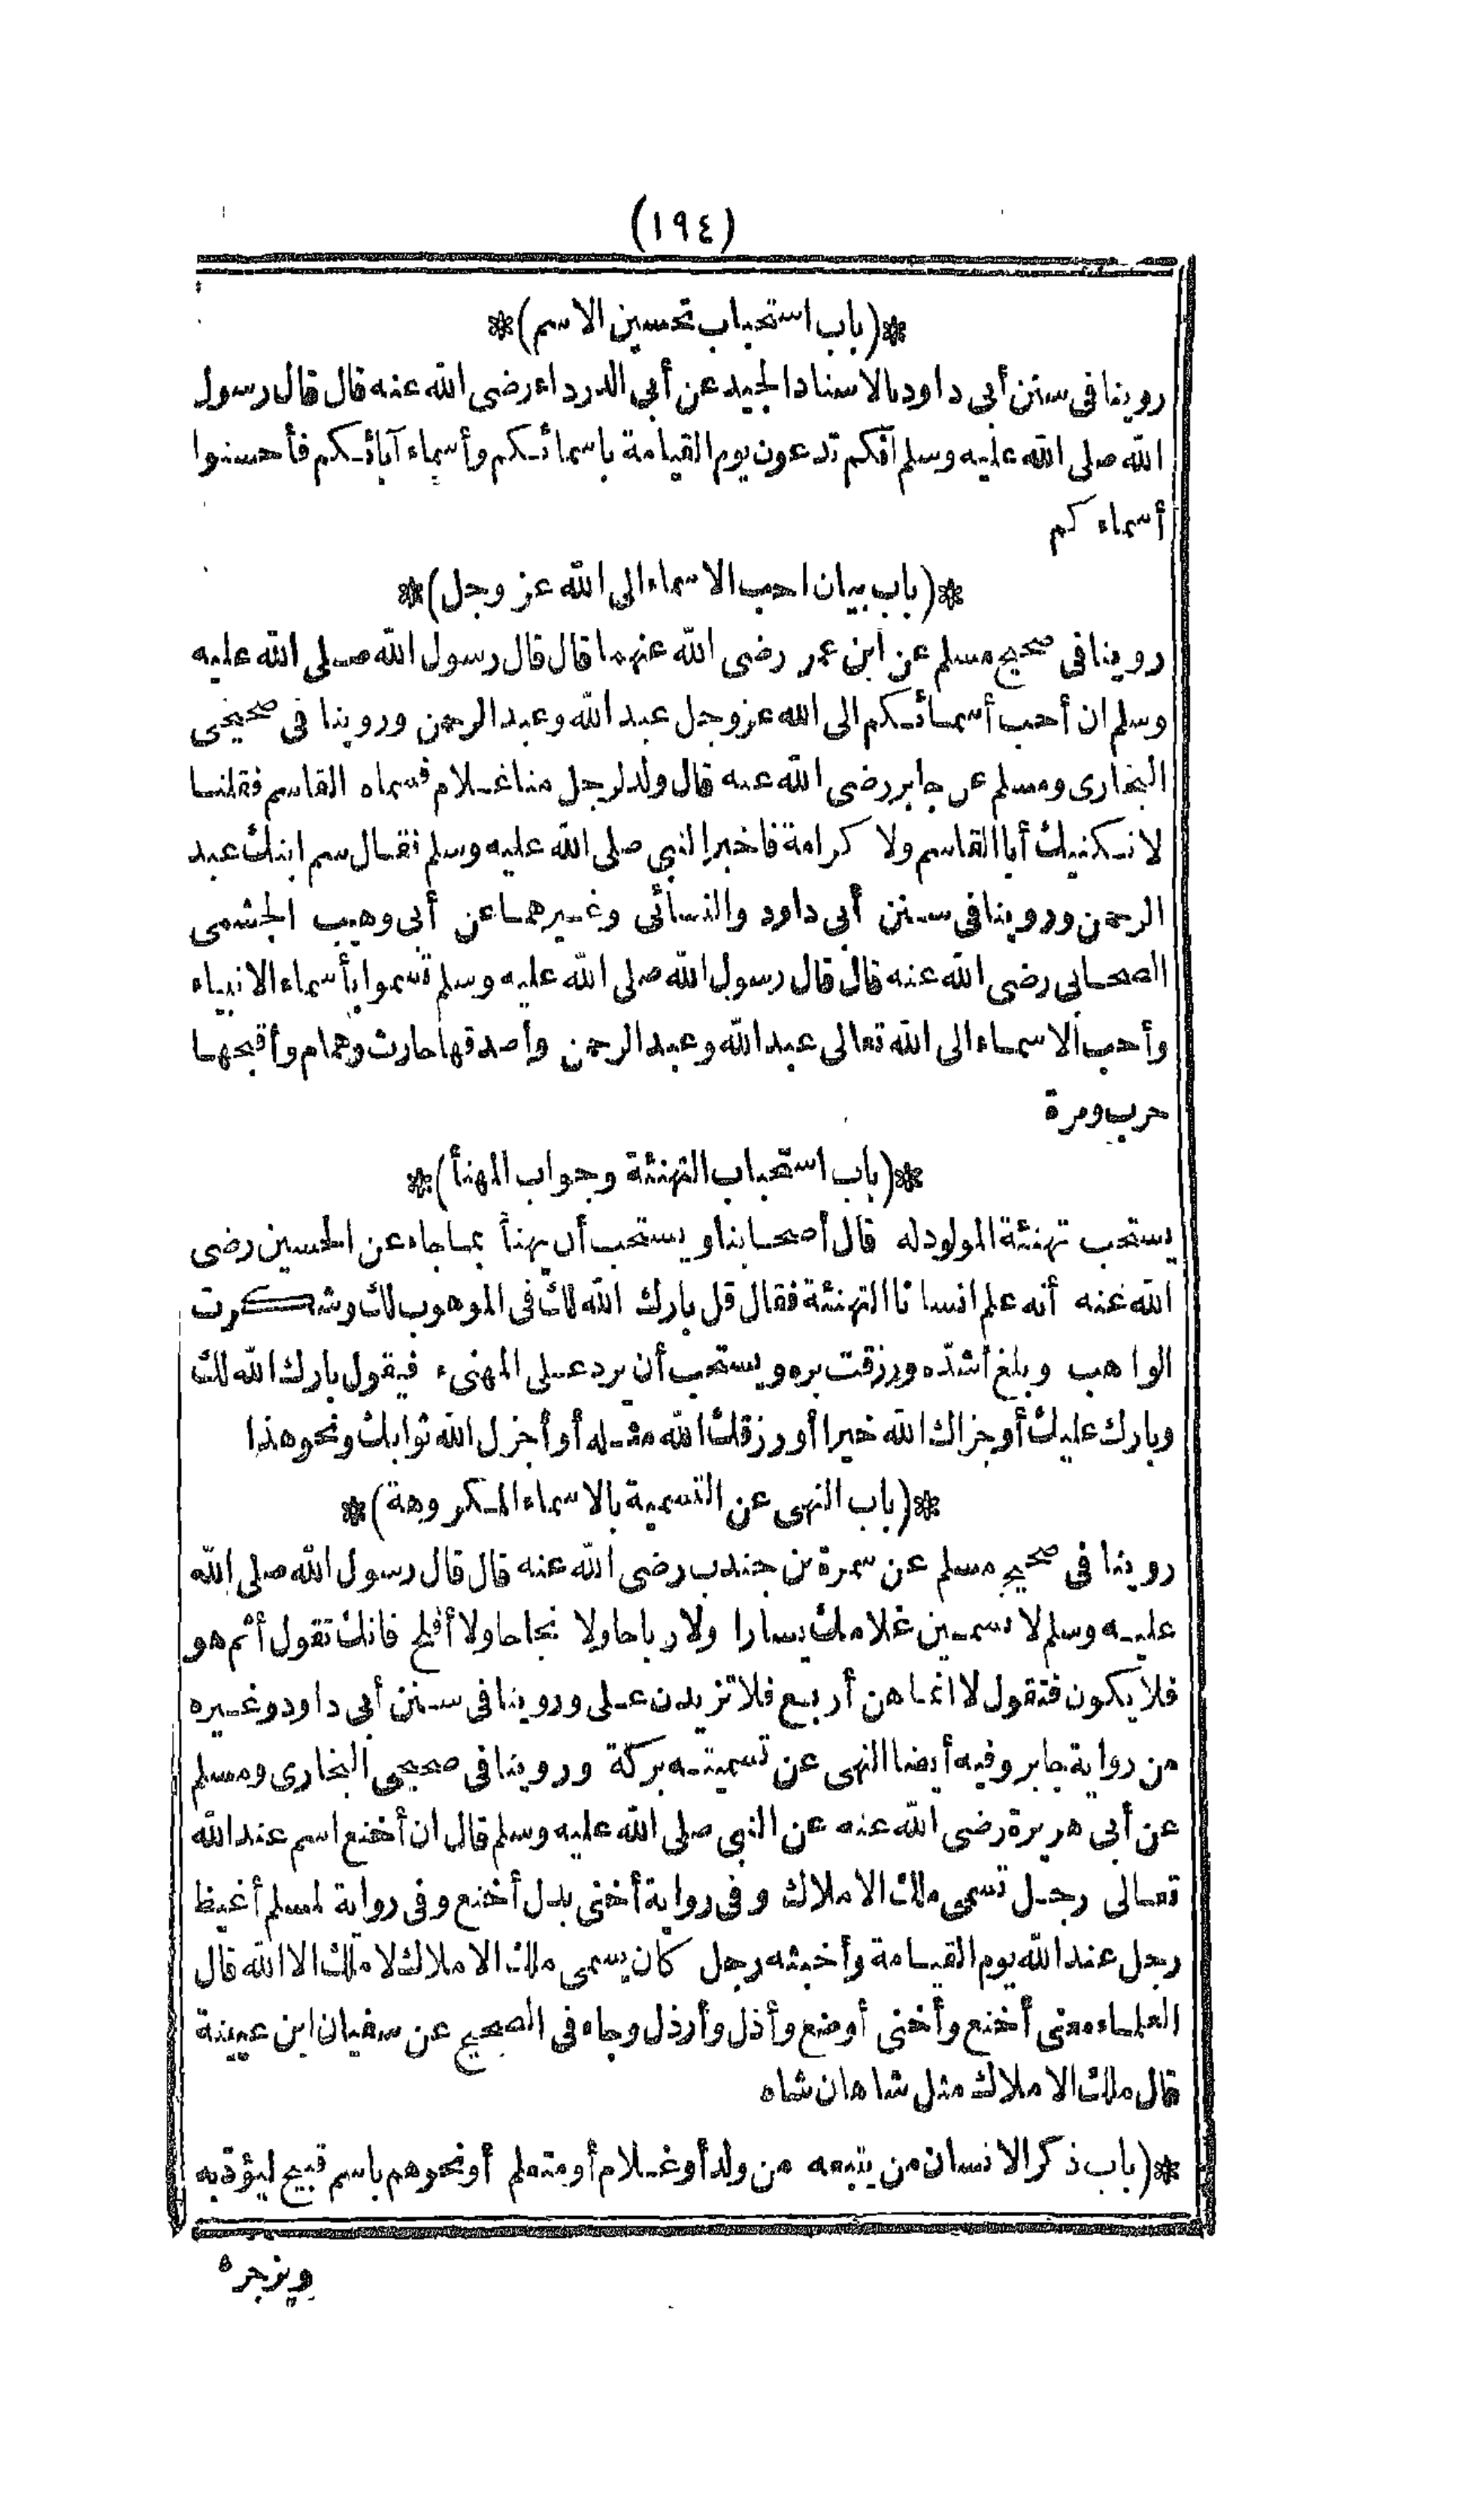 (١٩٤)
*(باب استحباب تحسين الاسم)*
روينا فى سنن أبى داود بالاسناد الجيد عن أبى الدرداء رضى الله عنه قال قال رسول
الله صلى الله عليه وسلم انكم تدعون يوم القيامة باسمائكم وأسماء آبائكم فأحسنوا
أسماءكم
*(باب بيان احب الاسماء الى الله عز وجل)*
روينا فى صحيح مسلم عن ابن عمر رضى الله عنهما قال قال رسول الله صلى الله عليه
وسلم ان أحب أسمائكم الى الله عز وجل عبد الله وعبد الرحمن وروينا فى صحيحى
البخارى ومسلم عن جابر رضى الله عنه قال ولد لرجل منا غلام فسماه القاسم فقلنا
لا نكنيك أبا القاسم ولا كرامة فاخبر النبى صلى الله عليه وسلم فقال سم ابنك عبد
الرحمن وروينا فى سنن أبى داود والنسائى وغيرهما عن أبى وهيب الجشمى
الصحابى رضى الله عنه قال قال رسول الله صلى الله عليه وسلم تسموا بأسماء الانبياء
وأحب الاسماء الى الله تعالى عبد الله وعبد الرحمن وأصدقها حارث وهمام وأقبحها
حرب ومرة
*(باب استحباب التهنئة وجواب المهنأ)*
يستحب تهنئة المولود له قال أصحابنا ويستحب أن يهنأ بما جاء عن الحسين رضى
الله عنه أنه علم انسانا التهنئة فقال قل بارك الله لك فى الموهوب لك وشكرت
الواهب وبلغ أشده ورزقت بره ويستحب أن يرد على المهنىء فيقول بارك الله لك
وبارك عليك أو جزاك الله خيرا أو رزقك الله مثله أو أجزل الله ثوابك ونحو هذا
*(باب النهى عن التسمية بالاسماء المكروهة)*
روينا فى صحيح مسلم عن سمرة بن جندب رضى الله عنه قال قال رسول الله صلى الله
عليه وسلم لا تسمين غلامك يسارا ولا رباحا ولا نجاحا ولا أفلح فانك تقول أثم هو
فلا يكون فتقول لا انما هن أربع فلا تزيدن على وروينا فى سنن أبى داود وغيره
من رواية جابر وفيه أيضا النهى عن تسميته بركة وروينا فى صحيحى البخارى ومسلم
عن أبى هريرة رضى الله عنه عن النبى صلى الله عليه وسلم قال ان أخنع اسم عند الله
تعالى رجل تسمى ملك الاملاك وفى رواية أخنى بدل أخنع وفى رواية لمسلم أغيظ
رجل عند الله يوم القيامة وأخبثه رجل كان يسمى ملك الاملاك لا ملك الا الله قال
العلماء معنى أخنع وأخنى أوضع وأذل وأرذل وجاء فى الصحيح عن سفيان ابن عيينة
قال ملك الاملاك مثل شاهان شاه
*(باب ذكر الانسان من يتبعه من ولد أو غلام أو متعلم أو نحوهم باسم قبيح ليؤدبه
ويزجره